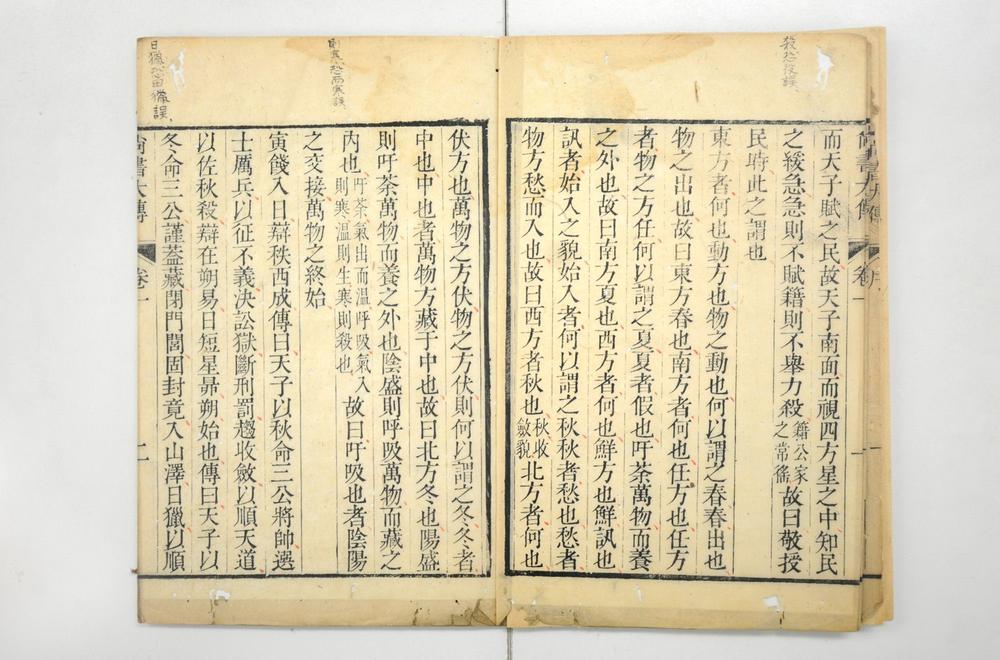 殺恐役誤
而天子賦之民故天子南面而視四方星之中知民
之緩急急則不賦籍則不舉力殺籍公家之常徭故曰敬授
民時此之謂也
東方者何也動方也物之動也何以謂之春春出也
物之出也故曰東方春也南方者何也任方也任方
者物之方任何以謂之夏夏者假也吁荼萬物而養
之外也故曰南方夏也西方者何也鮮方也鮮訊也
訊者始入之貌始入者何以謂之秋秋者愁也愁者
物方愁而入也故曰西方者秋也秋收斂貌北方者何也
則寒恐而寒誤
日獵恐田獵誤
伏方也萬物之方伏物之方伏則何以謂之冬冬者
中也中也者萬物方藏于中也故曰北方冬也陽盛
則吁荼萬物而養之外也陰盛則呼吸萬物而藏之
內也吁荼氣出而溫呼吸氣入則寒溫則生寒則殺也故曰吁吸也者陰陽
之交接萬物之終始
寅餞入日辯秩西成傳曰天子以秋命三公將帥選
士厲兵以征不義決訟獄斷刑罰趨收斂以順天道
以佐秋殺辯在朔易日短星昴朔始也傳曰天子以
冬命三公謹蓋藏閉門閭固封竟入山澤日獵以順
尚書大傳
卷一
二